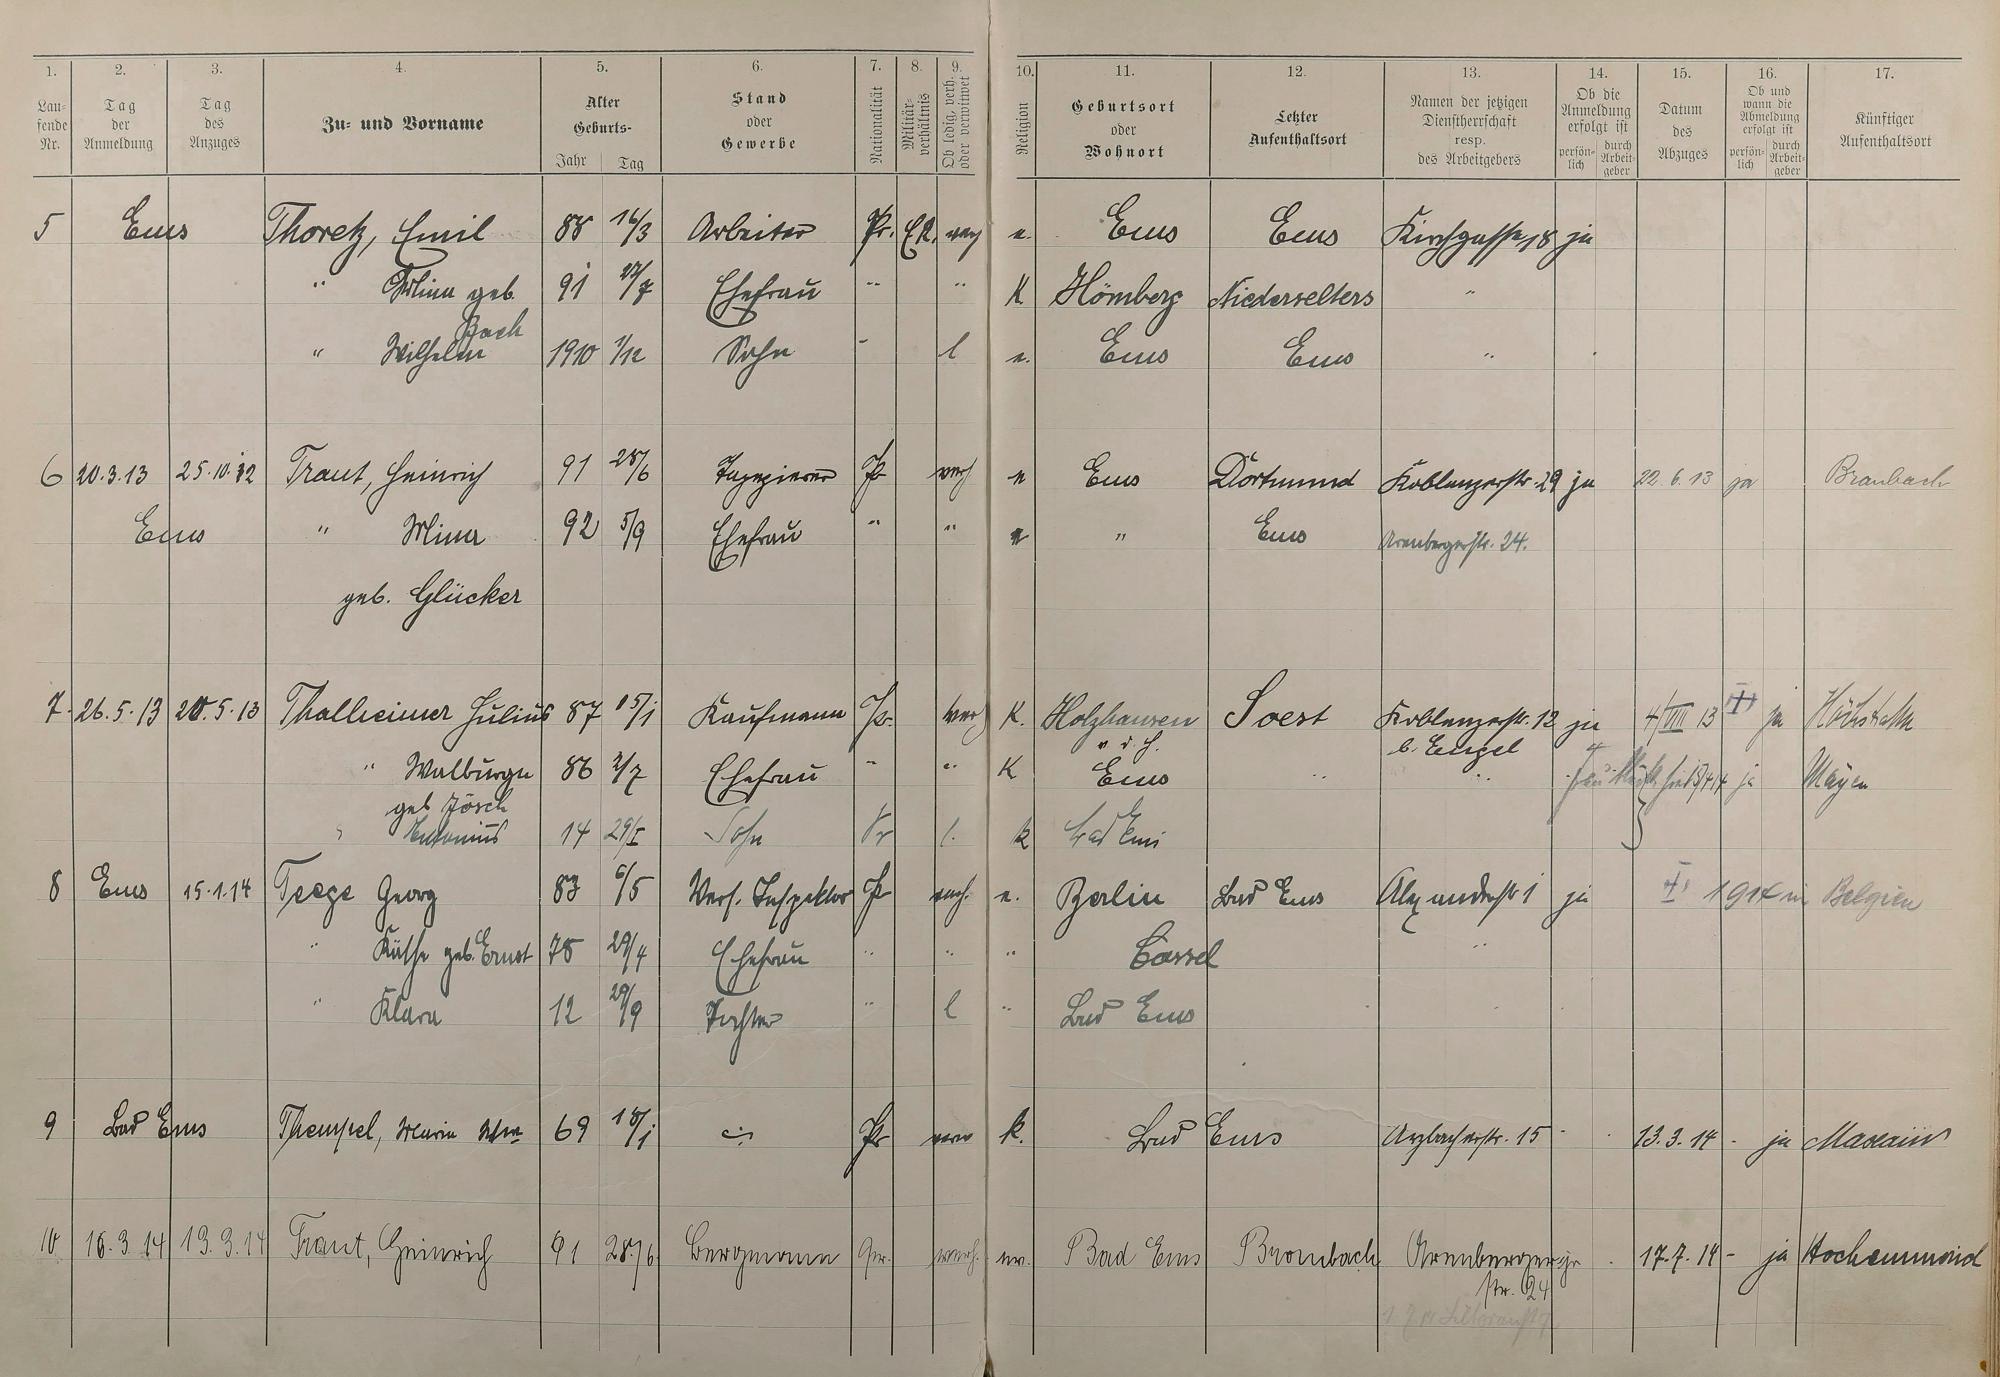 1. 2. 3. 4. 5. 6. 7. 8. 9. 10. 11. 12. 13. 14. 15. 16. 17.
Lau-fende Nr. Tag der Anmeldung Tag des Anzuges Zu- und Vorname Alter Geburts- Jahr Tag Stand oder Gewerbe Nationalität Militär-verhältnis Ob ledig, verh. oder verwitwet Religion Geburtsort oder Wohnort Letzter Aufenthaltsort Namen der jetzigen Dienstherrschaft resp. des Arbeitgebers Ob die Anmeldung erfolgt ist persön-lich durch Arbeit-geber Datum des Abzuges Ob und wann die Abmeldung erfolgt ist persön-lich durch Arbeit-geber Künftiger Aufenthaltsort
5 Ems Thoretz, Emil 88 16/3 Arbeiter Pr. E.R. verh e. Ems Ems Kirchgasse 18 ja
" Mina geb. 91 27/7 Ehefrau " " K Hömberg Niederselters "
Bach
" Wilhelm 1910 7/12 Sohn " l e. Ems Ems "
6 20.3.13 25.10.12 Traut, Heinrich 91 28/6 Tapezierer Pr verh e Ems Dortmund Koblenzerstr. 29 ja 22.6.13 ja Braubach
Ems " Mina 92 5/9 Ehefrau " " e " Ems Arenbergerstr. 24.
geb. Glücker
7. 26.5.13 20.5.13 Thalheimer Julius 87 15/1 Kaufmann Pr. verh K. Holzhausen Soest Koblenzerstr. 12 ja 4/VIII 13 ja
v. d. H. b. Engel
" Walburga 86 2/7 Ehefrau " " K Ems " " ja Mayen
geb Jösch
" Antonius 14 29/I Sohn Pr l. k Bad Ems
8 Ems 15.1.14 Teege Georg 83 6/5 Vers. Inspektor Pr verh. e. Berlin Bad Ems Alexanderstr 1 ja 1914 in Belgien
" Käthe geb. Ernst 78 29/4 Ehefrau " " " Cassel "
" Klara 12 29/9 Tochter " l " Bad Ems
9 Bad Ems Thempel, Maria Ww 69 18/1 Pr verw k. Bad Ems Arzbacherstr. 15 - 13.3.14 - ja Maxain
10 16.3.14 13.3.14 Traut, Heinrich 91 28/6 Bergmann Pr. verh. ev. Bad Ems Braubach Arenberger ja 17.7.14 - ja Hochemmerich
str. 24